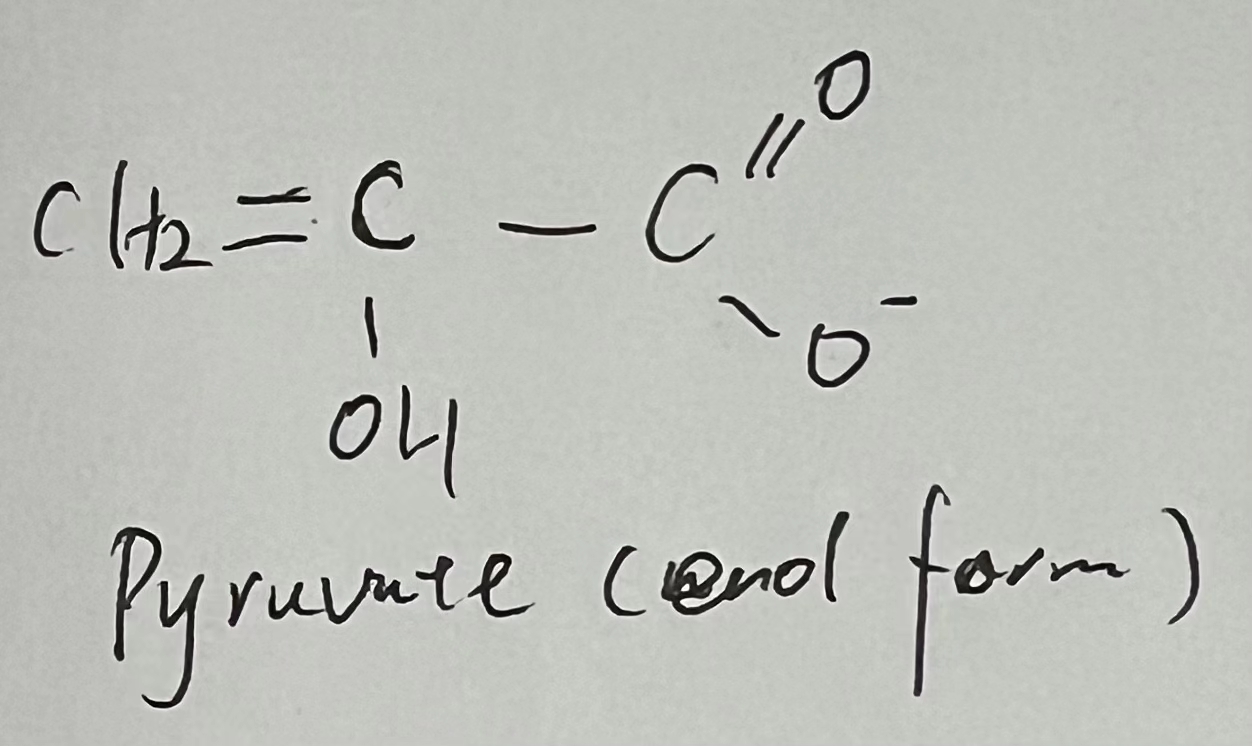 O
CH2=C — C
O-
OH
Pyruvate (enol form)